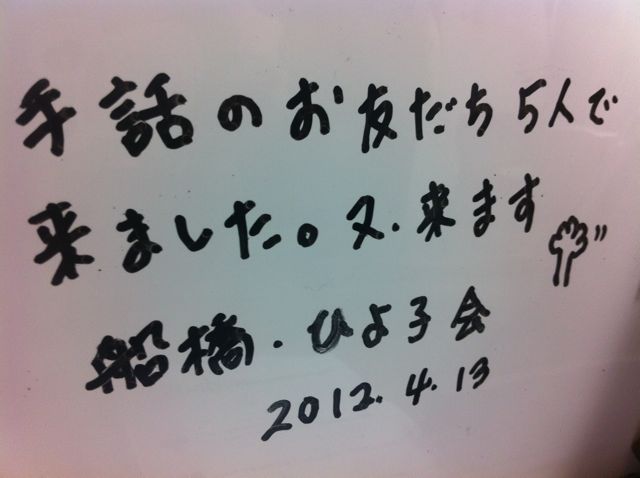 手話のお友だち5人で
来ました。又.来ます
船橋.ひよ子会
2012.4.13